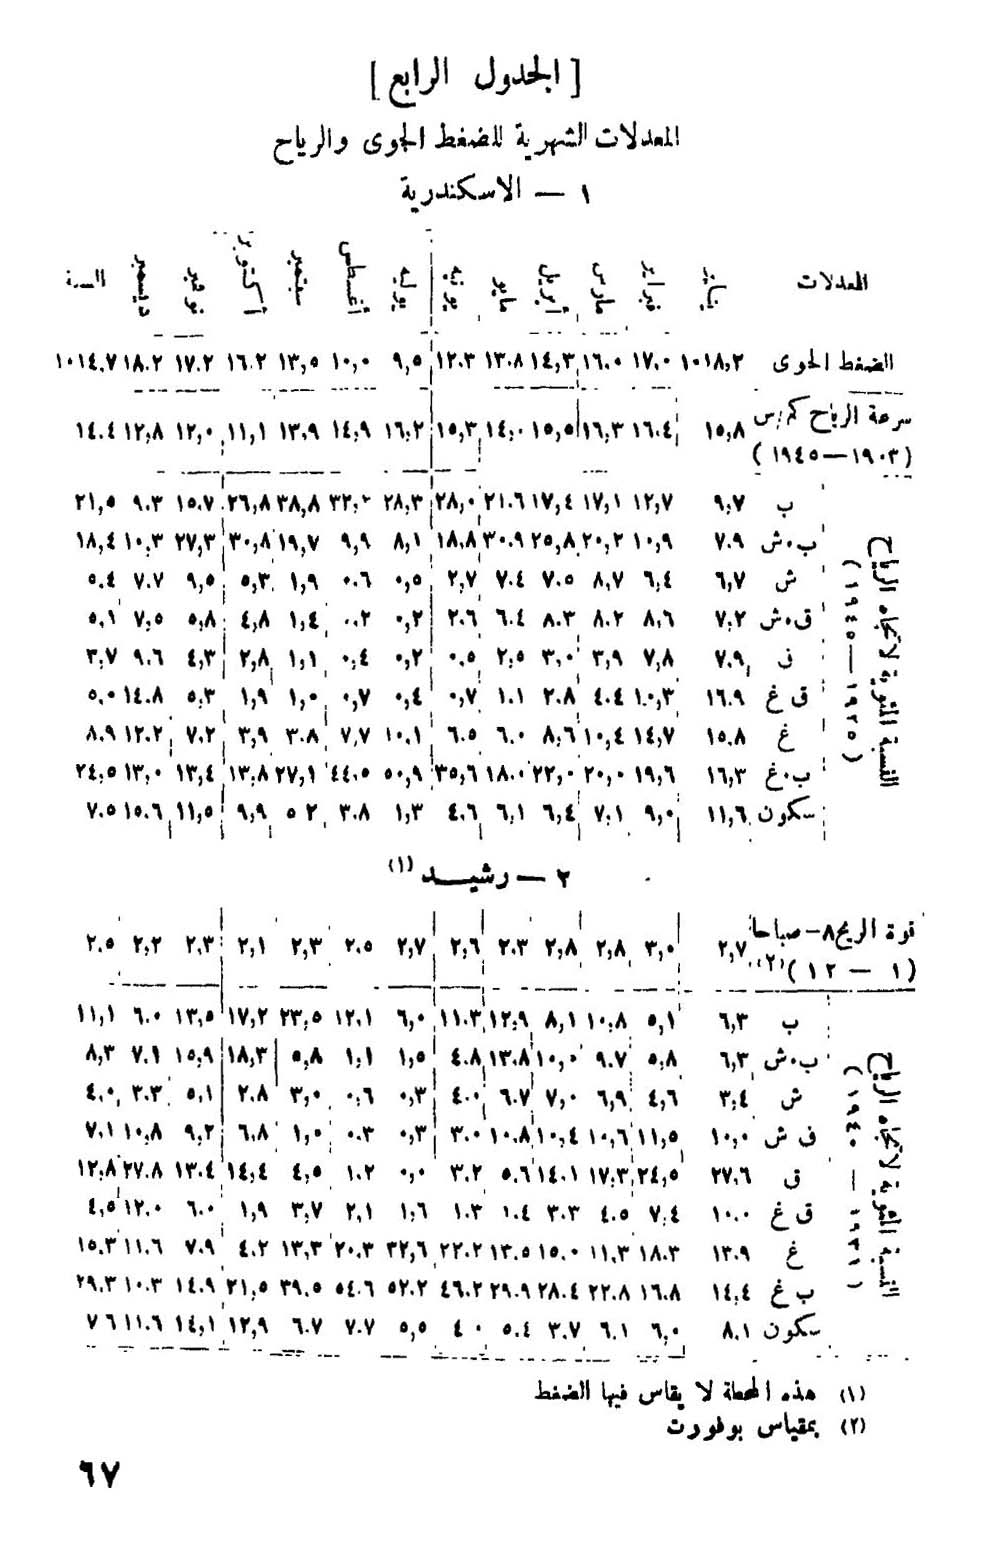 [ الجدول الرابع ]
المعدلات الشهرية للضغط الجوى والرياح
١ — الاسكندرية
المعدلات يناير فبراير مارس أبريل مايو يونيه يوليه أغسطس سبتمبر أكتوبر نوفمبر ديسمبر السنة
الضغط الجوى ١٠١٨,٢ ١٧,٠ ١٦,٠ ١٤,٣ ١٣,٨ ١٢,٣ ٩,٥ ١٠,٠ ١٣,٥ ١٦,٢ ١٧,٢ ١٨,٢ ١٠١٤,٧
سرعة الرياح كم/س ١٥,٨ ١٦,٤ ١٦,٣ ١٥,٥ ١٤,٠ ١٥,٣ ١٦,٢ ١٤,٩ ١٣,٩ ١١,١ ١٢,٠ ١٢,٨ ١٤,٤
(١٩٠٣—١٩٤٥)
النسبة المئوية لاتجاه الرياح
(١٩٣٥—١٩٤٥)
ب ٩,٧ ١٢,٧ ١٧,١ ١٧,٤ ٢١,٦ ٢٨,٠ ٢٨,٣ ٣٢,٢ ٣٨,٨ ٢٦,٨ ١٥,٧ ٩,٣ ٢١,٥
ب٠ش ٧,٩ ١٠,٩ ٢٠,٢ ٢٥,٨ ٣٠,٩ ١٨,٨ ٨,١ ٩,٩ ١٩,٧ ٣٠,٨ ٢٧,٣ ١٠,٣ ١٨,٤
ش ٦,٧ ٦,٤ ٨,٧ ٧,٥ ٧,٤ ٢,٧ ٠,٥ ٠,٦ ١,٩ ٥,٣ ٩,٥ ٧,٧ ٥,٤
ق٠ش ٧,٢ ٨,٦ ٨,٢ ٨,٣ ٦,٤ ٢,٦ ٠,٢ ٠,٢ ١,٤ ٤,٨ ٥,٨ ٧,٥ ٥,١
ق ٧,٩ ٧,٨ ٣,٩ ٣,٠ ٢,٥ ٠,٥ ٠,٢ ٠,٤ ١,١ ٢,٨ ٤,٣ ٩,٦ ٣,٧
ق غ ١٦,٩ ١٠,٣ ٤,٤ ٢,٨ ١,١ ٠,٧ ٠,٤ ٠,٧ ١,٠ ١,٩ ٥,٣ ١٤,٨ ٥,٠
غ ١٥,٨ ١٤,٧ ١٠,٤ ٨,٦ ٦,٠ ٦,٥ ١٠,١ ٧,٧ ٣,٨ ٣,٩ ٧,٢ ١٢,٢ ٨,٩
ب٠غ ١٦,٣ ١٩,٦ ٢٠,٠ ٢٢,٠ ١٨,٠ ٣٥,٦ ٥٠,٩ ٤٤,٥ ٢٧,١ ١٣,٨ ١٣,٤ ١٣,٠ ٢٤,٥
سكون ١١,٦ ٩,٠ ٧,١ ٦,٤ ٦,١ ٤,٦ ١,٣ ٣,٨ ٥ ٢ ٩,٩ ١١,٥ ١٥,٦ ٧,٥
٢ — رشيــد (١)
قوة الريح ٨- صباحا ٢,٧ ٣,٠ ٢,٨ ٢,٨ ٢,٣ ٢,٦ ٢,٧ ٢,٥ ٢,٣ ٢,١ ٢,٣ ٢,٢ ٢,٥
(١ — ١٢) (٢)
النسبة المئوية لاتجاه الرياح
(١٩٣١ — ١٩٤٠)
ب ٦,٣ ٥,١ ١٠,٨ ٨,١ ١٢,٩ ١١,٣ ٦,٠ ١٢,١ ٢٣,٥ ١٧,٢ ١٣,٥ ٦,٠ ١١,١
ب٠ش ٦,٣ ٥,٨ ٩,٧ ١٠,٠ ١٣,٨ ٤,٨ ١,٥ ١,١ ٥,٨ ١٨,٣ ١٥,٩ ٧,٩ ٨,٣
ش ٣,٤ ٤,٦ ٦,٩ ٧,٠ ٦,٧ ٤,٠ ٠,٣ ٠,٦ ٣,٠ ٢,٨ ٥,١ ٣,٣ ٤,٠
ق ش ١٠,٠ ١١,٥ ١٠,٦ ١٠,٤ ١٠,٨ ٣,٠ ٠,٣ ٠,٣ ١,٠ ٦,٨ ٩,٢ ١٠,٨ ٧,١
ق ٢٧,٦ ٢٤,٥ ١٧,٣ ١٤,١ ٥,٦ ٣,٢ ٠,٠ ١,٢ ٤,٥ ١٤,٤ ١٣,٤ ٢٧,٨ ١٢,٨
ق غ ١٠,٠ ٧,٤ ٤,٥ ٣,٣ ١,٤ ١,٣ ١,٦ ٢,١ ٣,٧ ١,٩ ٦,٠ ١٢,٠ ٤,٥
غ ١٣,٩ ١٨,٣ ١١,٣ ١٥,٠ ١٣,٥ ٢٢,٢ ٣٢,٦ ٢٠,٣ ١٣,٣ ٤,٢ ٧,٩ ١١,٦ ١٥,٣
ب غ ١٤,٤ ١٦,٨ ٢٢,٨ ٢٨,٤ ٢٩,٩ ٤٦,٢ ٥٢,٢ ٥٤,٦ ٣٩,٥ ٢١,٥ ١٤,٩ ١٠,٣ ٢٩,٣
سكون ٨,١ ٦,٠ ٦,١ ٣,٧ ٥,٤ ٤٠ ٥,٥ ٧,٧ ٦,٧ ١٢,٩ ١٤,١ ١١,٦ ٧٦
(١) هذه المحطة لا يقاس فيها الضغط
(٢) بمقياس بوفورت
٦٧